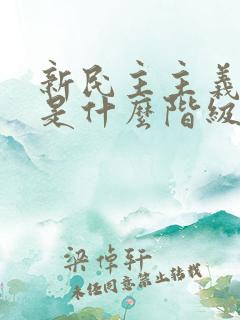 新民主主義
是什麼階級
梁倬軒
未经同意禁止转载